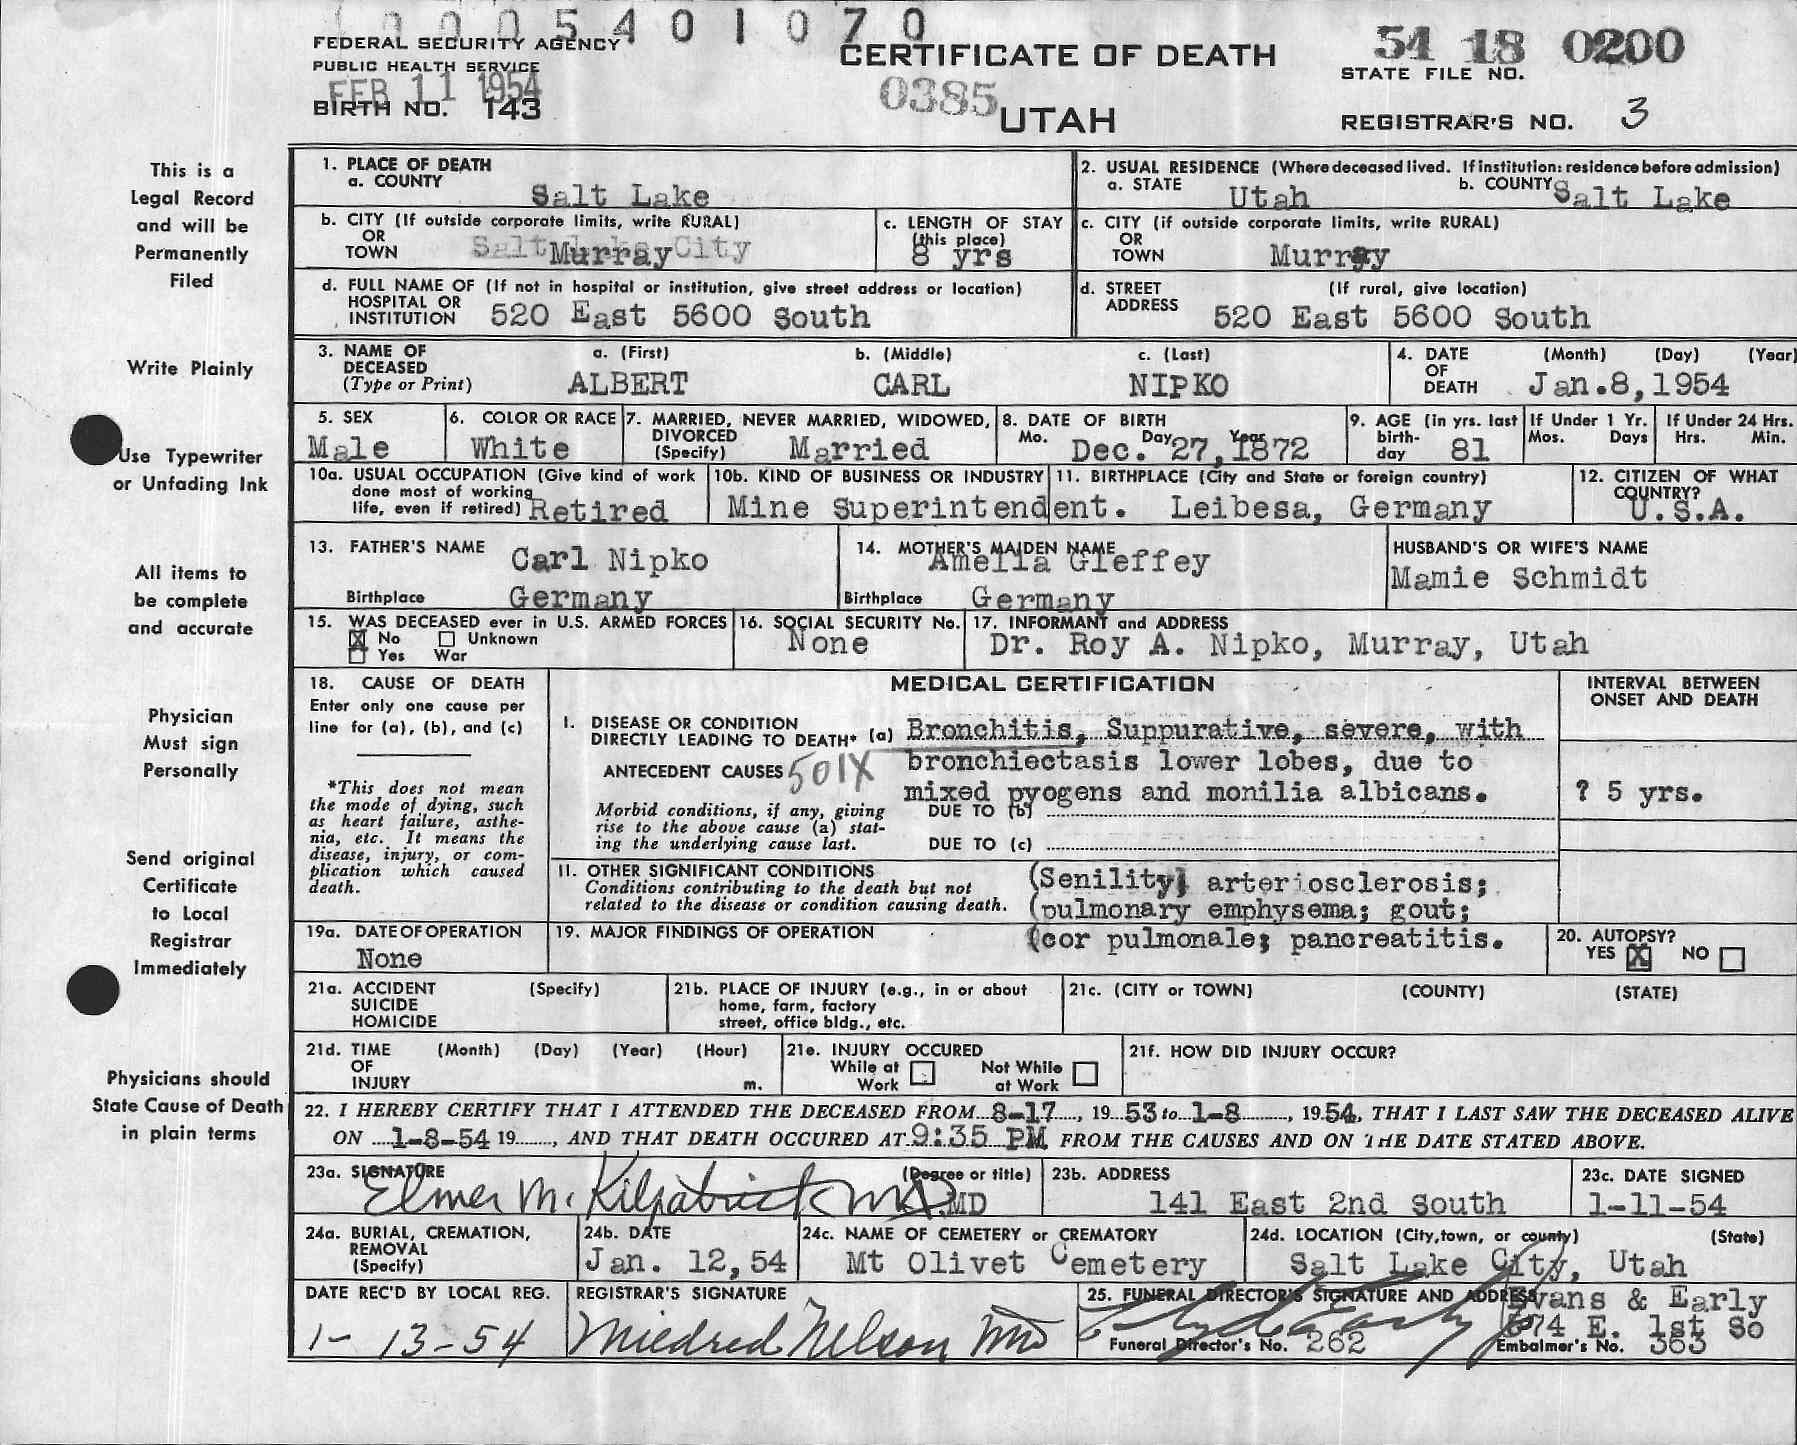 1 0 0 0 5 4 0 1 0 7 0
FEDERAL SECURITY AGENCY
PUBLIC HEALTH SERVICE
FEB 11 1954
BIRTH NO. 143
CERTIFICATE OF DEATH
0385
UTAH
54 18 0200
STATE FILE NO.
REGISTRAR'S NO. 3
This is a
Legal Record
and will be
Permanently
Filed
Write Plainly
Use Typewriter
or Unfading Ink
All items to
be complete
and accurate
Physician
Must sign
Personally
Send original
Certificate
to Local
Registrar
Immediately
Physicians should
State Cause of Death
in plain terms
1. PLACE OF DEATH
a. COUNTY
Salt Lake
2. USUAL RESIDENCE (Where deceased lived. If institution: residence before admission)
a. STATE Utah b. COUNTY Salt Lake
b. CITY (If outside corporate limits, write RURAL)
OR
TOWN Murray
c. LENGTH OF STAY
(this place)
8 yrs
c. CITY (if outside corporate limits, write RURAL)
OR
TOWN Murray
d. FULL NAME OF (If not in hospital or institution, give street address or location)
HOSPITAL OR
INSTITUTION 520 East 5600 South
d. STREET (If rural, give location)
ADDRESS 520 East 5600 South
3. NAME OF DECEASED
(Type or Print)
a. (First) b. (Middle) c. (Last)
ALBERT CARL NIPKO
4. DATE OF DEATH (Month) (Day) (Year)
Jan.8,1954
5. SEX
Male
6. COLOR OR RACE
White
7. MARRIED, NEVER MARRIED, WIDOWED,
DIVORCED
(Specify) Married
8. DATE OF BIRTH
Mo. Day Year
Dec. 27, 1872
9. AGE (in yrs. last
birth-
day 81
If Under 1 Yr.
Mos. Days
If Under 24 Hrs.
Hrs. Min.
10a. USUAL OCCUPATION (Give kind of work
done most of working
life, even if retired) Retired
10b. KIND OF BUSINESS OR INDUSTRY
Mine Superintendent.
11. BIRTHPLACE (City and State or foreign country)
Leibesa, Germany
12. CITIZEN OF WHAT
COUNTRY?
U.S.A.
13. FATHER'S NAME Carl Nipko
Birthplace Germany
14. MOTHER'S MAIDEN NAME
Amelia Gleffey
Birthplace Germany
HUSBAND'S OR WIFE'S NAME
Mamie Schmidt
15. WAS DECEASED ever in U.S. ARMED FORCES
X No Unknown
Yes War
16. SOCIAL SECURITY No.
None
17. INFORMANT and ADDRESS
Dr. Roy A. Nipko, Murray, Utah
18. CAUSE OF DEATH
Enter only one cause per
line for (a), (b), and (c)
*This does not mean
the mode of dying, such
as heart failure, asthe-
nia, etc. It means the
disease, injury, or com-
plication which caused
death.
MEDICAL CERTIFICATION
INTERVAL BETWEEN
ONSET AND DEATH
I. DISEASE OR CONDITION
DIRECTLY LEADING TO DEATH* (a) Bronchitis, Suppurative, severe, with
ANTECEDENT CAUSES 501X bronchiectasis lower lobes, due to
mixed pyogens and monilia albicans. ? 5 yrs.
Morbid conditions, if any, giving
rise to the above cause (a) stat-
ing the underlying cause last.
DUE TO (b)
DUE TO (c)
II. OTHER SIGNIFICANT CONDITIONS
Conditions contributing to the death but not
related to the disease or condition causing death.
(Senility; arteriosclerosis;
(pulmonary emphysema; gout;
(cor pulmonale; pancreatitis.
19a. DATE OF OPERATION
None
19. MAJOR FINDINGS OF OPERATION
20. AUTOPSY?
YES X NO
21a. ACCIDENT (Specify)
SUICIDE
HOMICIDE
21b. PLACE OF INJURY (e.g., in or about
home, farm, factory
street, office bldg., etc.
21c. (CITY or TOWN) (COUNTY) (STATE)
21d. TIME (Month) (Day) (Year) (Hour)
OF
INJURY m.
21e. INJURY OCCURED
While at Work Not While at Work
21f. HOW DID INJURY OCCUR?
22. I HEREBY CERTIFY THAT I ATTENDED THE DECEASED FROM 8-17, 19 53 to 1-8, 1954, THAT I LAST SAW THE DECEASED ALIVE
ON 1-8-54 19, AND THAT DEATH OCCURED AT 9:35 PM FROM THE CAUSES AND ON THE DATE STATED ABOVE.
23a. SIGNATURE (Degree or title)
Elmer M. Kilpatrick MD MD
23b. ADDRESS
141 East 2nd South
23c. DATE SIGNED
1-11-54
24a. BURIAL, CREMATION,
REMOVAL
(Specify)
24b. DATE
Jan. 12,54
24c. NAME OF CEMETERY or CREMATORY
Mt Olivet Cemetery
24d. LOCATION (City, town, or county) (State)
Salt Lake City, Utah
DATE REC'D BY LOCAL REG.
1-13-54
REGISTRAR'S SIGNATURE
Mildred Nelson MD
25. FUNERAL DIRECTOR'S SIGNATURE AND ADDRESS
Evans & Early
574 E. 1st So
Funeral Director's No. 262
Embalmer's No. 363